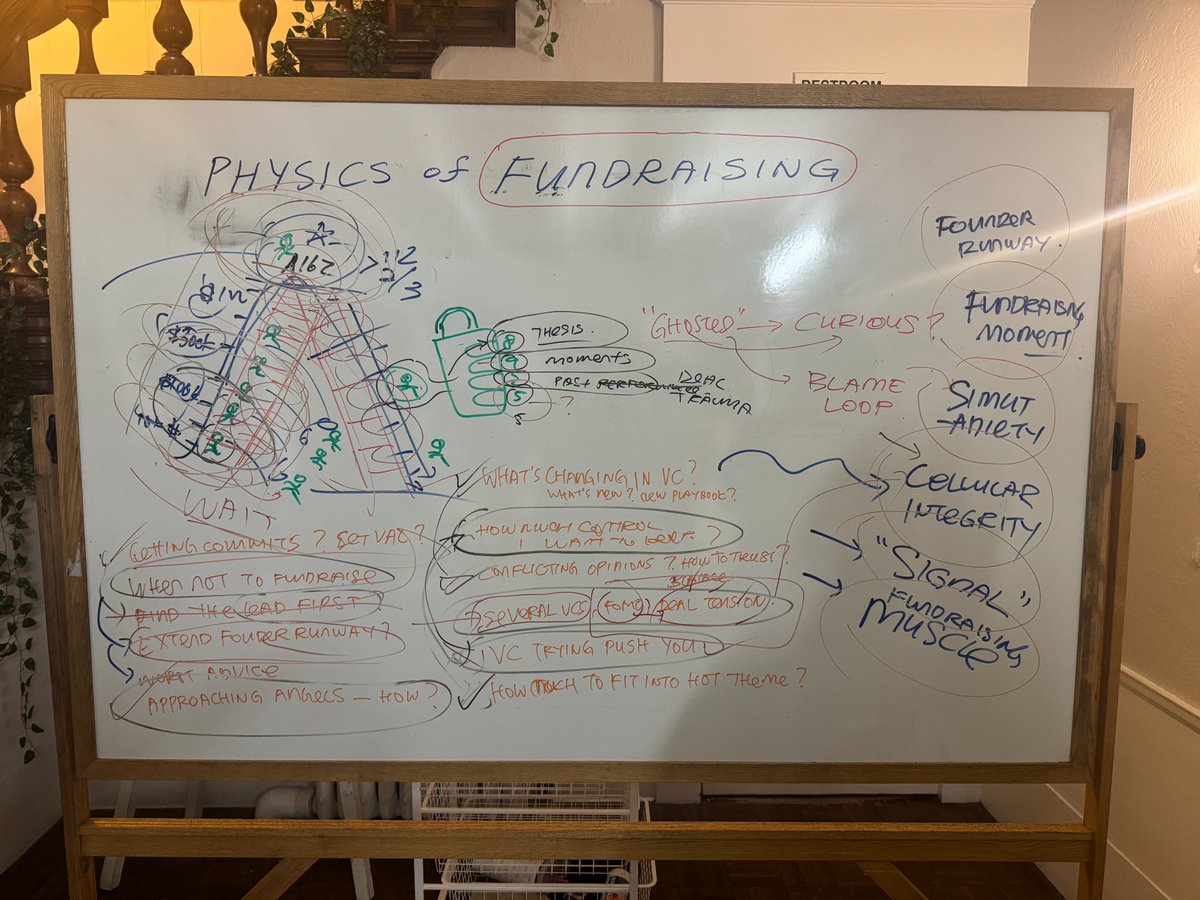 RESTROOM
PHYSICS of FUNDRAISING
FOUNDER
RUNWAY.
FUNDRAISING
MOMENT.
SIMUT
-ANIETY
CELLULAR
INTEGRITY
"SIGNAL"
FUNDRAISING
MUSCLE
A16Z
$300k
THESIS.
MOMENTS
PAST
TRAUMA
?
"GHOSTED" → CURIOUS?
BLAME
LOOP
WAIT
GETTING COMMITS? SET VAL?
WHEN NOT TO FUNDRAISE
FIND THE LEAD FIRST?
EXTEND FOUNDER RUNWAY?
WORST ADVICE
APPROACHING ANGELS — HOW?
WHAT'S CHANGING IN VC?
WHAT'S NEW? NEW PLAYBOOK?
HOW MUCH CONTROL
I WANT TO
CONFLICTING OPINIONS? HOW TO TRUST?
SEVERAL VCS FOMO DEAL TENSION
1 VC TRYING PUSH YOU
HOW MUCH TO FIT INTO HOT THEME?